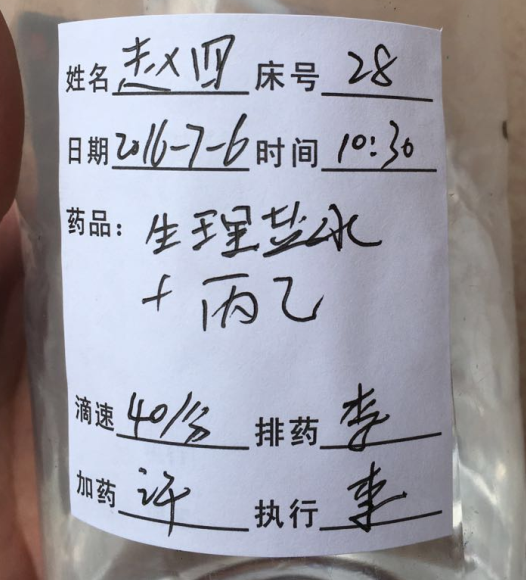 姓名 赵四 床号 28
日期 2016-7-6 时间 10:30
药品: 生理盐水
+ 丙乙
滴速 40/分 排药 李
加药 许 执行